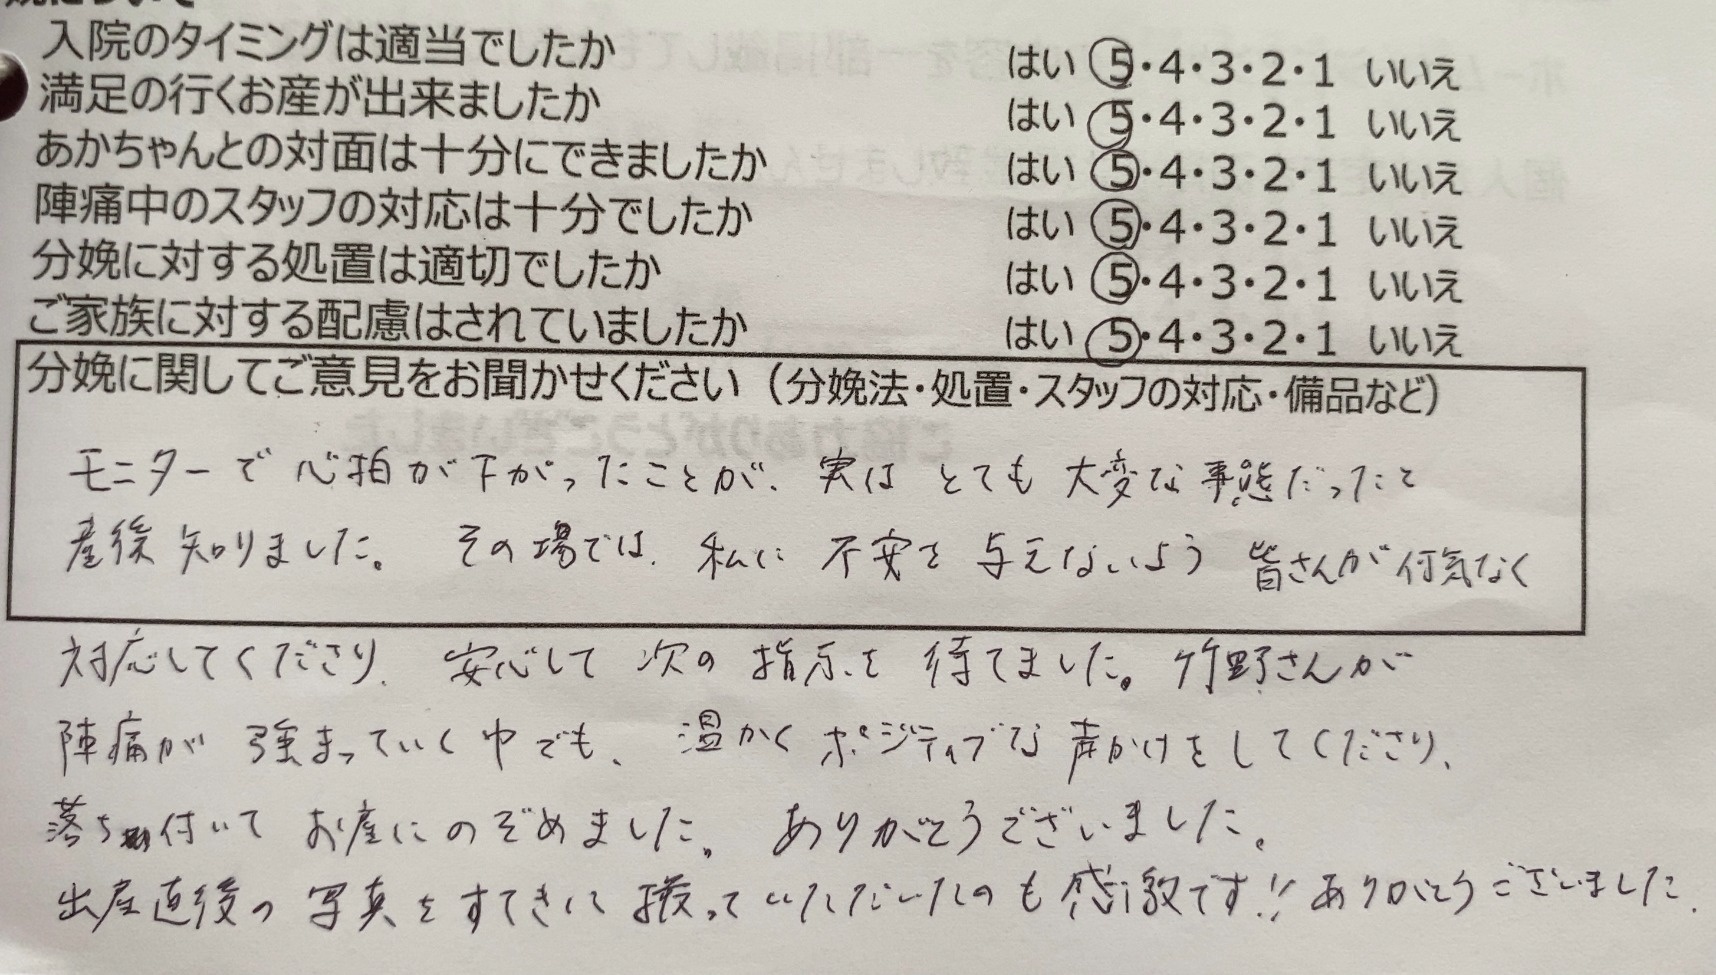 入院のタイミングは適当でしたか はい 5・4・3・2・1 いいえ
満足の行くお産が出来ましたか はい 5・4・3・2・1 いいえ
あかちゃんとの対面は十分にできましたか はい 5・4・3・2・1 いいえ
陣痛中のスタッフの対応は十分でしたか はい 5・4・3・2・1 いいえ
分娩に対する処置は適切でしたか はい 5・4・3・2・1 いいえ
ご家族に対する配慮はされていましたか はい 5・4・3・2・1 いいえ
分娩に関してご意見をお聞かせください（分娩法・処置・スタッフの対応・備品など）
モニターで心拍が下がったことが、実はとても大変な事態だったと
産後知りました。その場では、私に不安を与えないよう皆さんが何気なく
対応してくださり、安心して次の指示を待てました。竹野さんが
陣痛が強まっていく中でも、温かくポジティブな声かけをしてくださり、
落ち付いてお産にのぞめました。ありがとうございました。
出産直後の写真をすてきに撮っていただいたのも感激です!!ありがとうございました。